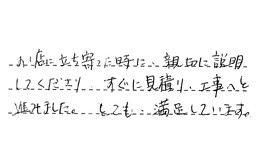 お店に立ち寄った時に、親切に説明
してくださり、すぐに見積り、工事へと
進みました。とても、満足しています。